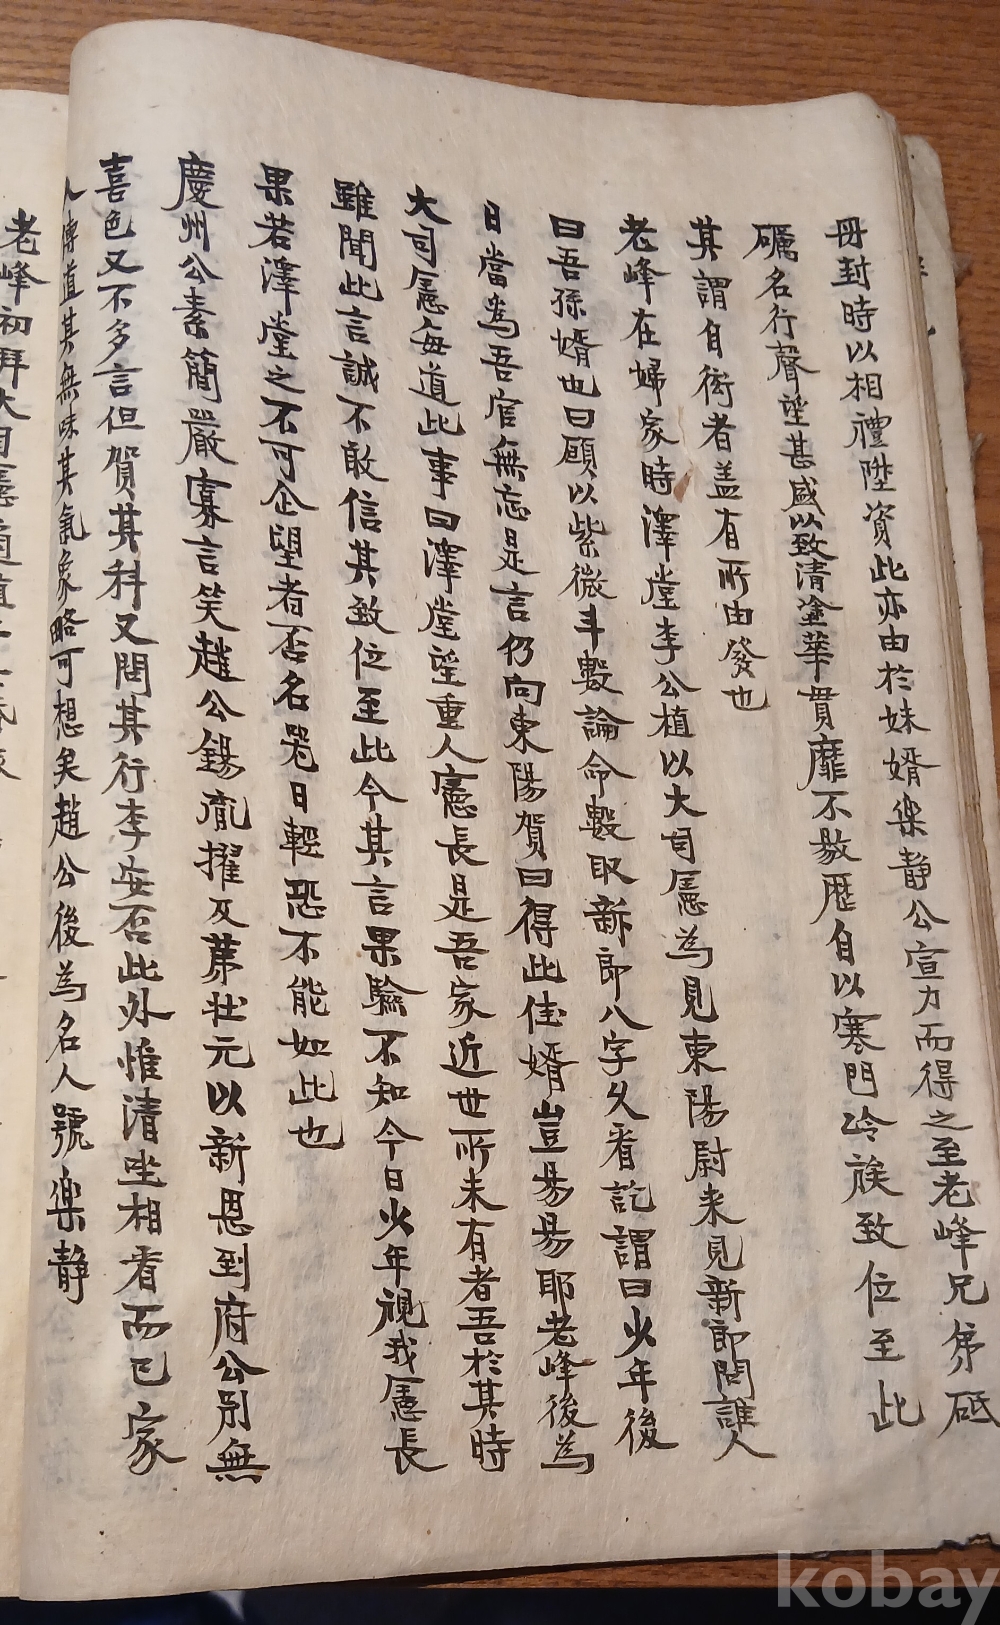 冊封時以相禮陞資此亦由於妹婿樂靜公宣力而得之至老峰兄弟砥
礪名行聲望甚盛以致清塗華貫靡不敭歷自以寒門冷族致位至此
其謂自衒者盖有所由發也
老峰在婦家時澤堂李公植以大司憲為見東陽尉来見新郎問誰人
曰吾孫婿也曰願以紫微斗數論命數取新郎八字久看訖謂曰少年後
日當為吾官無忘是言仍向東陽賀曰得此佳婿豈易易耶老峰後為
大司憲每道此事曰澤堂望重人憲長是吾家近世所未有者吾於其時
雖聞此言誠不敢信其致位至此今其言果驗不知今日少年視我憲長
果若澤堂之不可企望者否名器日輕恐不能如此也
慶州公素簡嚴寡言笑趙公錫胤擢及第壮元以新恩到府公別無
喜色又不多言但賀其科又問其行李安否此外惟清坐相看而已家
人傳道其無味其氣象略可想矣趙公後為名人號樂静
老峰初拜大司憲